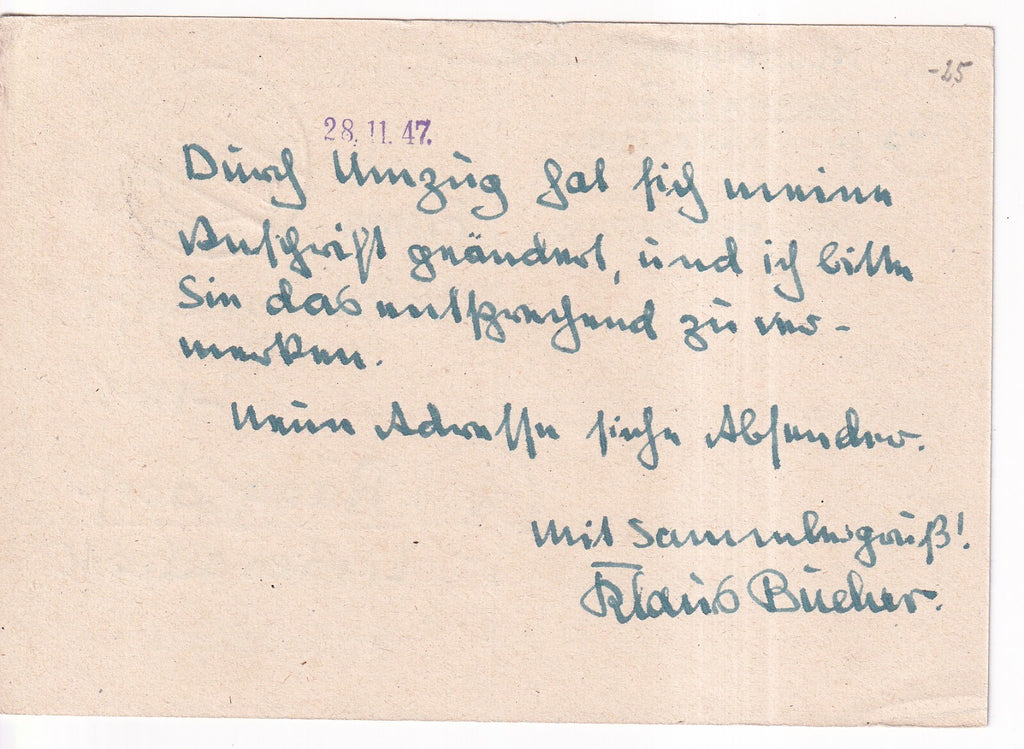 -25
28.11.47.
Durch Umzug hat sich meine
Anschrift geändert, und ich bitte
Sie das entsprechend zu ver-
merken.
Neue Adresse siehe Absender.
Mit Sammlergruß!
Klaus Bücher.